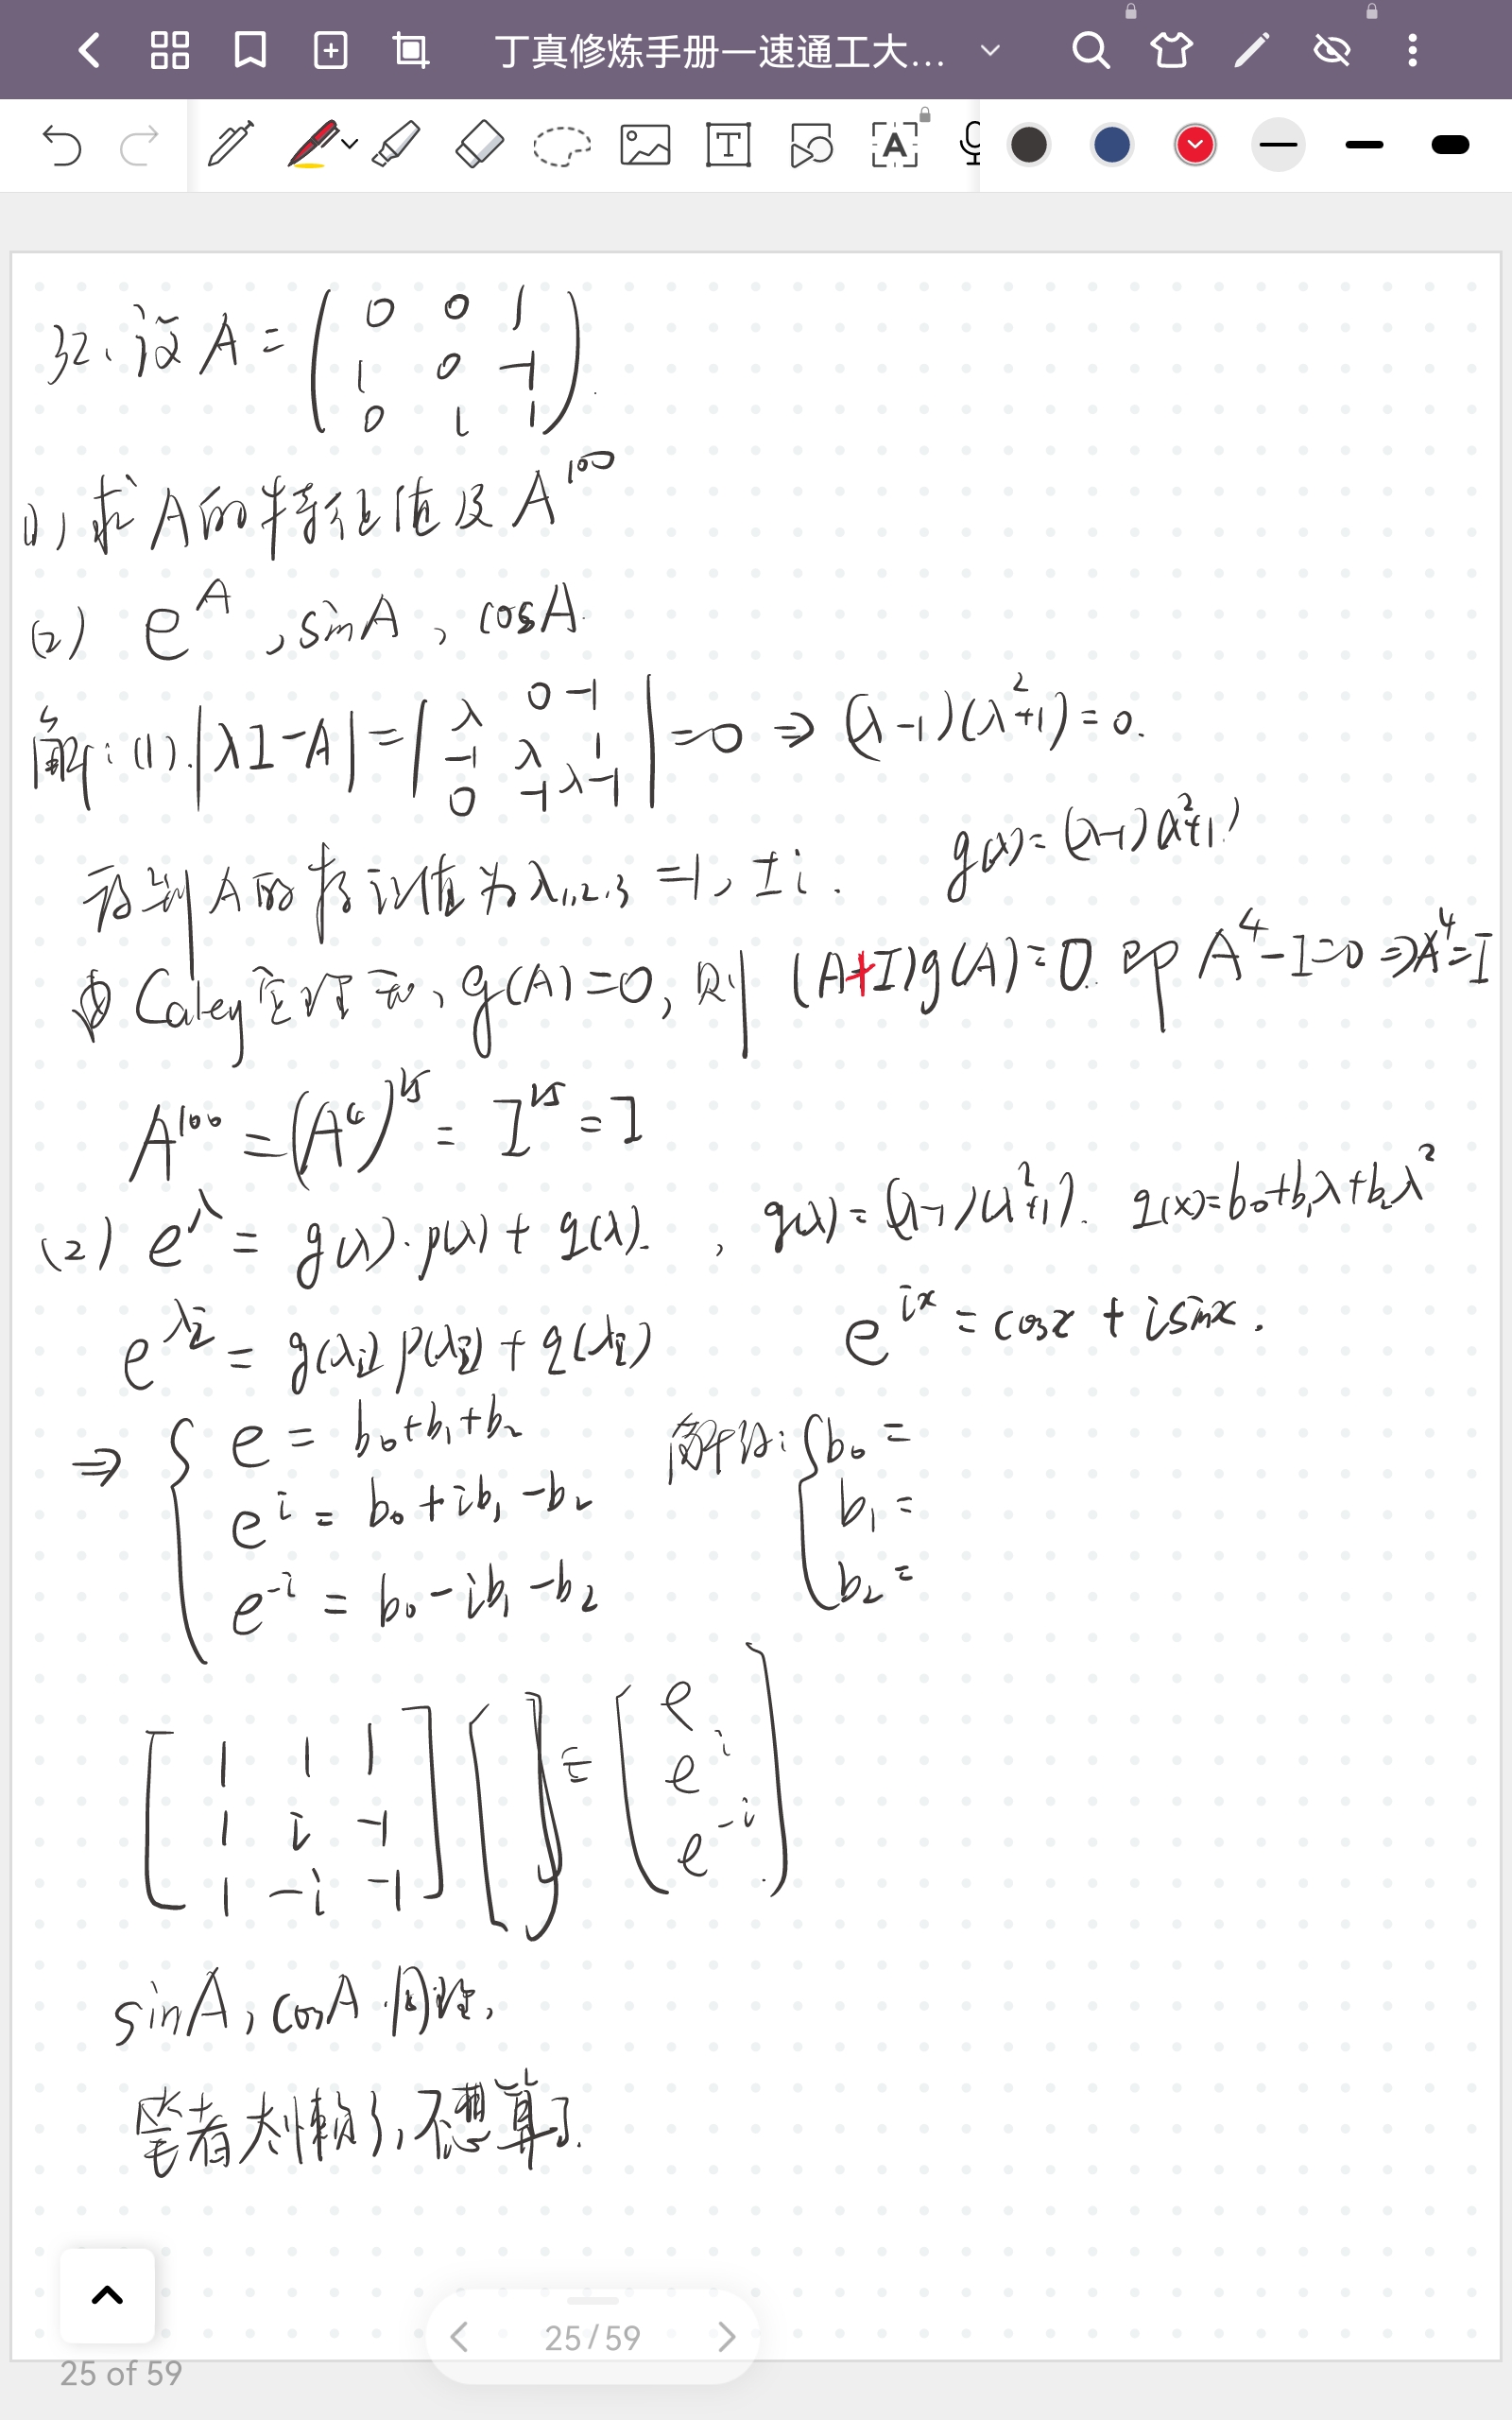 丁真修炼手册—速通工大...
32、设 A = ( 0 0 1
1 0 -1
0 1 1 ).
(1) 求A的特征值及A^100
(2) e^A , sinA , cosA.
解: (1). |λI-A| = | λ 0 -1
-1 λ 1
0 -1 λ-1 | = 0 ⇒ (λ-1)(λ²+1) = 0.
得到A的特征值为 λ1,2,3 = 1, ±i. g(λ) = (λ-1)(λ²+1)
由Caley定理知, g(A) = 0, 则 (A+I)g(A) = 0. 即 A^4 - I = 0 ⇒ A^4 = I
A^100 = (A^4)^25 = I^25 = I
(2) e^λ = g(λ)·p(λ) + q(λ). , g(λ) = (λ-1)(λ²+1). q(x) = b0+b1λ+b2λ²
e^λi = g(λi)p(λi) + q(λi) e^ix = cosx + isinx.
⇒ { e = b0+b1+b2 解得: { b0 =
e^i = b0+ib1-b2 b1 =
e^-i = b0-ib1-b2 b2 =
[ 1 1 1
1 i -1
1 -i -1 ] [ ] = [ e
e^i
e^-i ]
sinA, cosA 同理,
笔者太懒了, 不想算了.
25/59
25 of 59